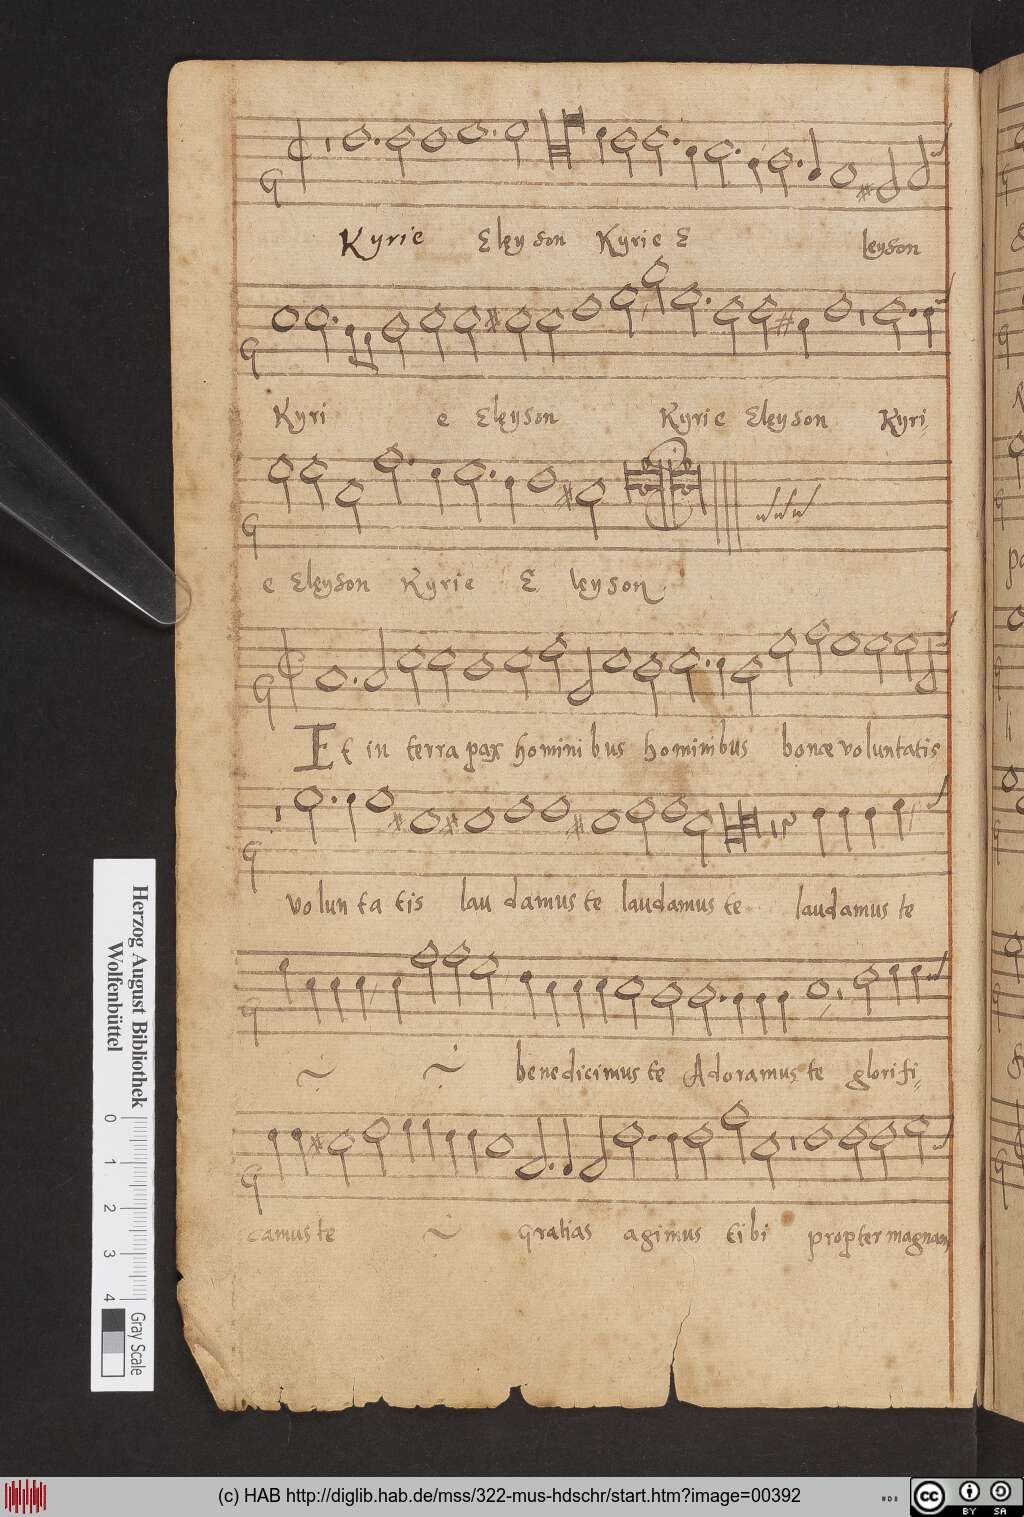 Kyrie Eleyson Kyrie E leyson
Kyri e Eleyson Kyrie Eleyson Kyri-
e Eleyson Kyrie E leyson.
Et in terra pax homini bus hominibus bonæ voluntatis
volun ta tis lau damus te laudamus te laudamus te
benedicimus te Adoramus te glorifi-
camus te Gratias agimus tibi propter magnam
Herzog August Bibliothek
Wolfenbüttel
0 1 2 3 4
Gray Scale
(c) HAB http://diglib.hab.de/mss/322-mus-hdschr/start.htm?image=00392
cc BY SA